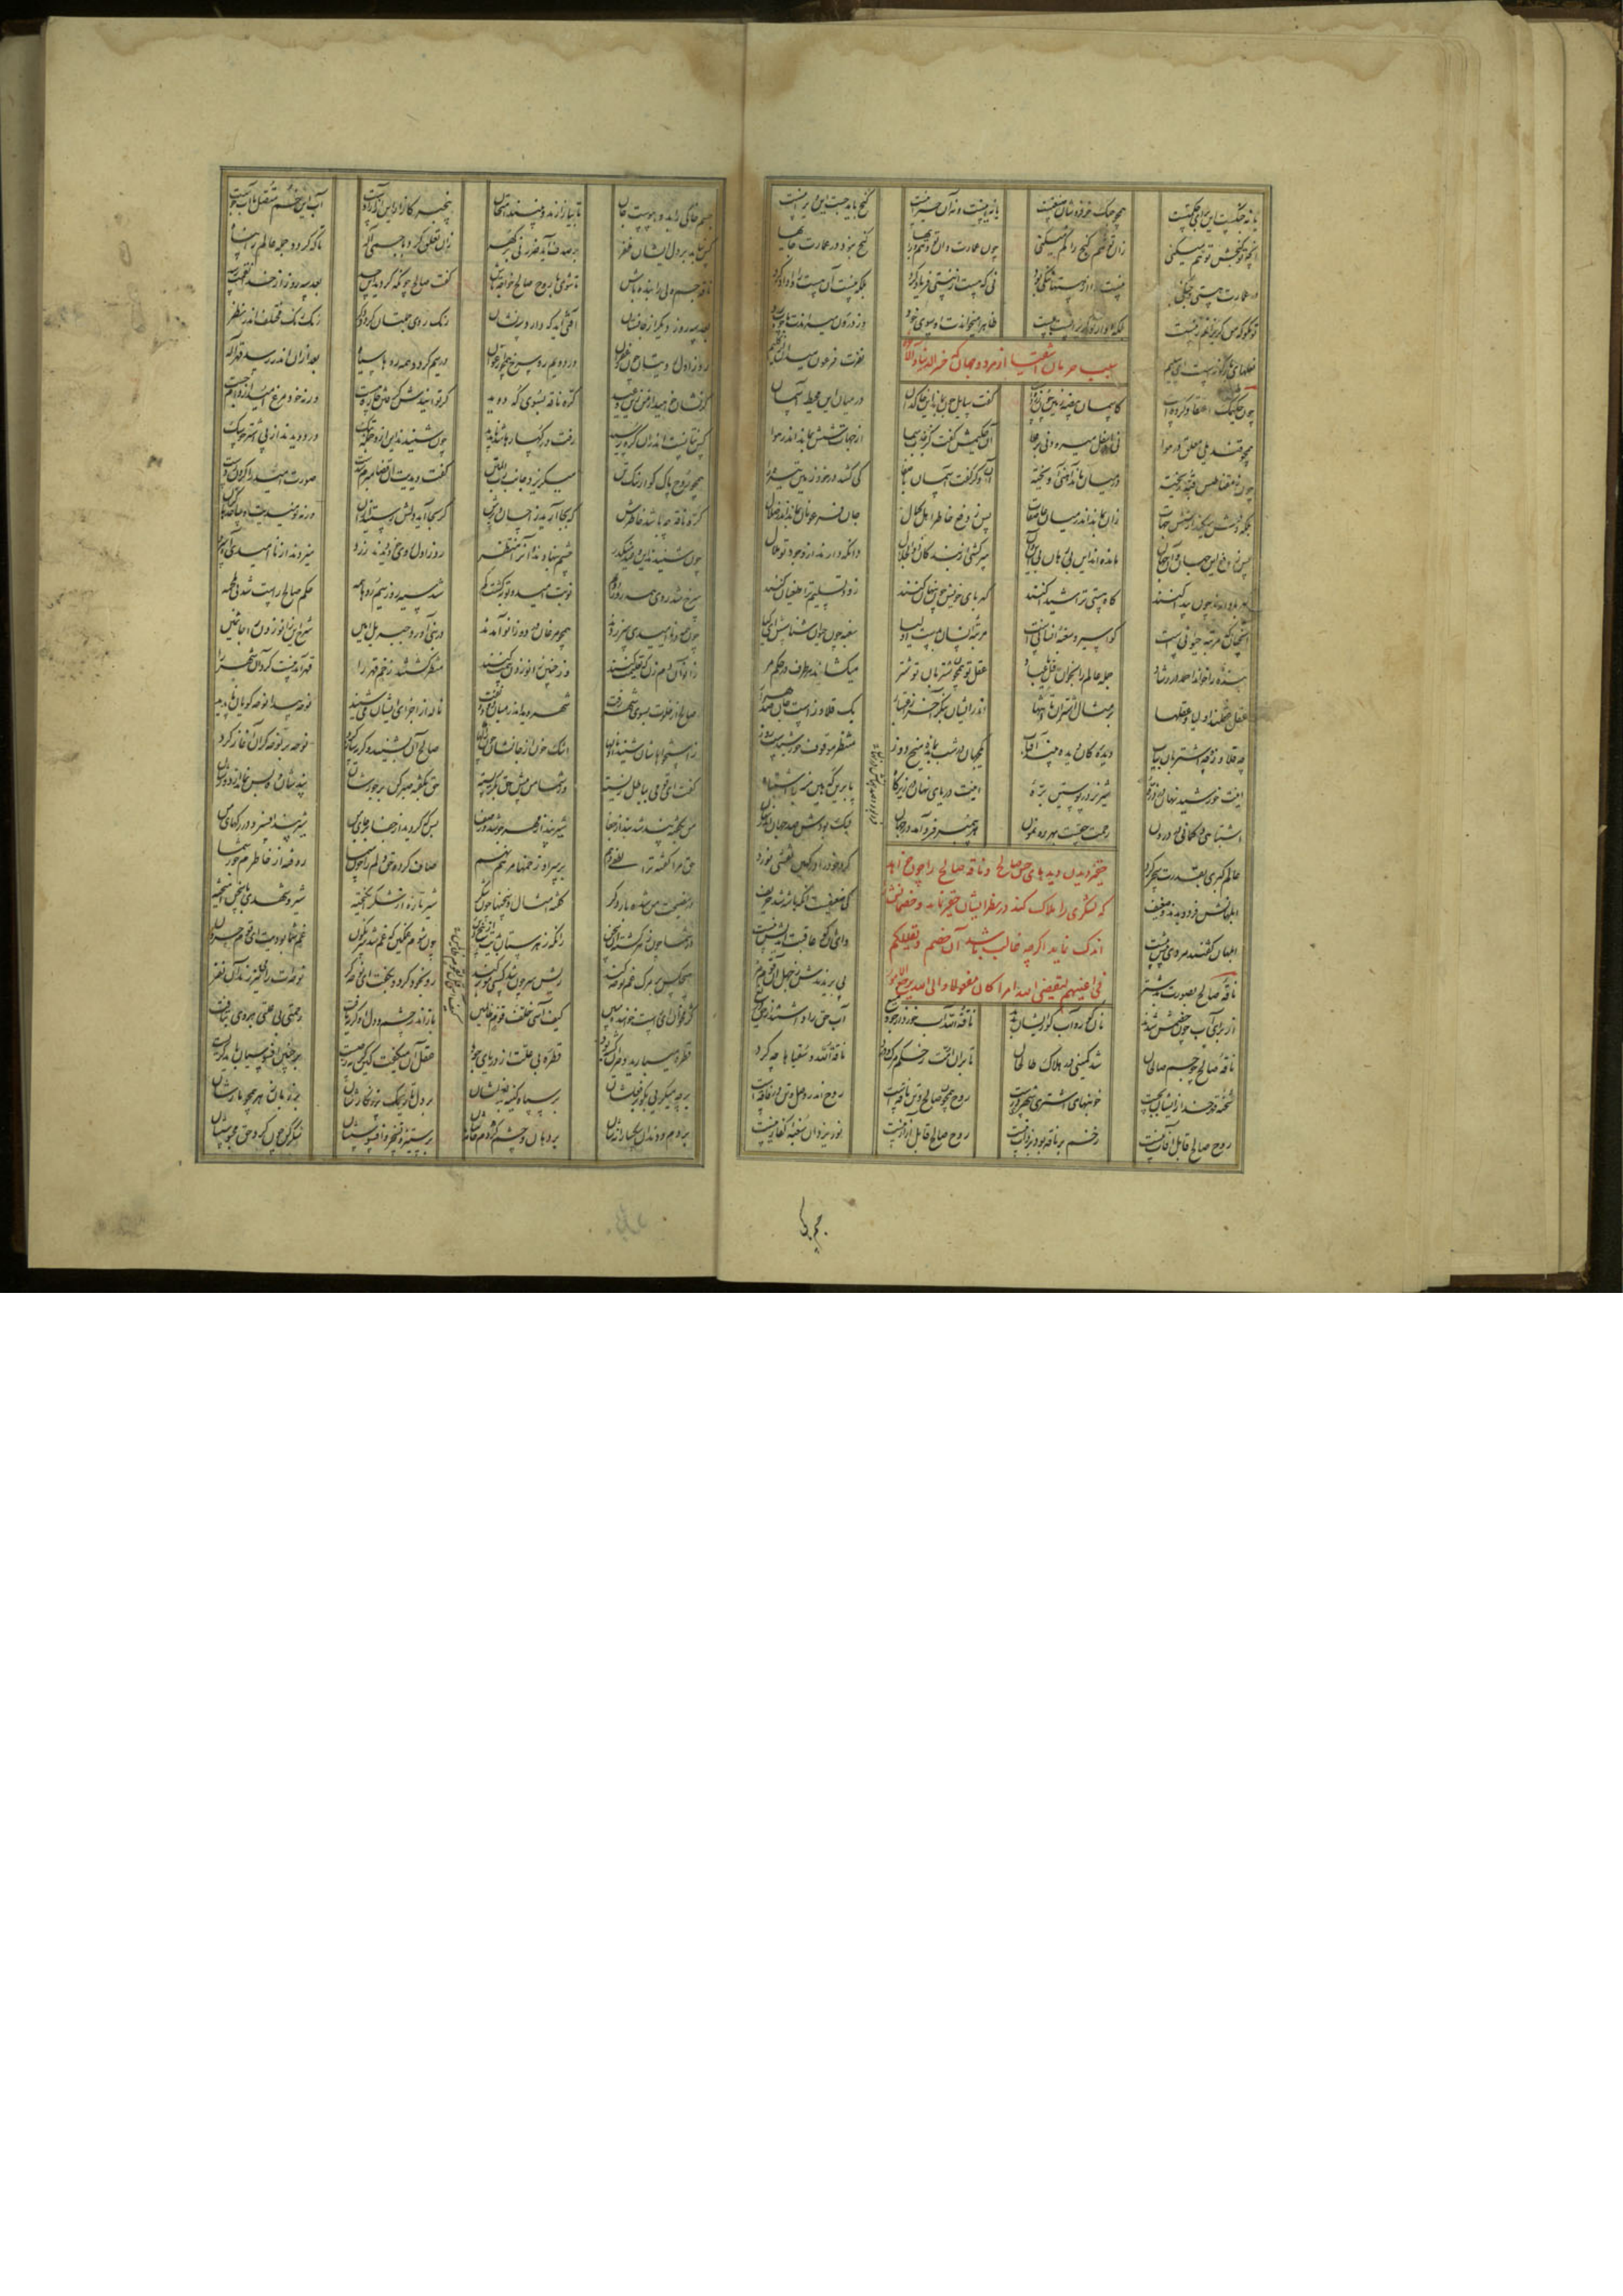 یا نه جنگست این برای حکمتست همچو جنگ خرفروشان صنعتست یا نه اینست و نه آن حیرانیست گنج باید جست این ویرانیست
آنچه تو گنجش توهم میکنی زان توهم گنج را گم میکنی چون عمارت دان تو وهم و رایها گنج نبود در عمارت جایها
در عمارت هستی و جنگی بود نیست را از هستها ننگی بود نی که هست از نیستی فریاد کرد بلکه نیست آن هست را واداد کرد
تو مگو که من گریزانم ز نیست بلکه او از تو گریزانست بیست ظاهرا میخواندت او سوی خود وز درون میراندت با چوب رد
نعلهای بازگونه است ای سلیم نفرت فرعون میدان از کلیم
سبب حرمان اشقیا از هر دو جهان که خسر الدنیا والآخرة
چون حکیمک اعتقادی کرده است کاسمان بیضه زمین چون زرده است گفت سایل چون بماند این خاکدان در میان این محیط آسمان
همچو قندیلی معلق در هوا نی باسفل میرود نی بر علا آن حکیمش گفت کز جذب سما از جهات شش بماند اندر هوا
چون ز مغناطیس قبه ریخته در میان ماند آهنی آویخته آن دگر گفت آسمان با صفا کی کشد در خود زمین تیره را
بلکه دفعش میکند از شش جهات زان بماند اندر میان عاصفات پس ز دفع خاطر اهل کمال جان فرعونان بماند اندر ضلال
پس ز دفع این جهان و آن جهان مانده اند این بی رهان بی این و آن سرکشی از بندگان ذوالجلال دانکه دارند از وجود تو ملال
کهربا دارند چون پیدا کنند کاه هستی ترا شیدا کنند کهربای خویش چون پنهان کنند زود تسلیم ترا طغیان کنند
آنچنان که مرتبه حیوانیست کو اسیر و سغبه انسانیست مرتبه انسان بدست اولیا سغبه چون حیوان شناسش ای کیا
بنده خود خواند احمد در رشاد جمله عالم را بخوان قل یا عباد عقل تو همچون شتربان تو شتر میکشاند هر طرف در حکم مر
عقل عقلند اولیا و عقلها بر مثال اشتران تا انتها اندر ایشان بنگر آخر ز اعتبار یک قلاوزست جان صد هزار
چه قلاوز و چه اشتربان بیاب دیده کان دیده بیند آفتاب یک جهان در شب بمانده میخ دوز منتظر موقوف خورشیدست و روز
اینت خورشید نهان در ذره شیر نر در پوستین بره اینت دریای نهان در زیر کاه پا برین که هین منه با اشتباه
اشتباهی و گمانی در درون رحمت حقست بهر رهنمون هر پیمبر فرد آمد در جهان فرد بود و صد جهانش در نهان
عالم کبری بقدرت سحر کرد کرد خود را در کهین نقشی نورد
ابلهانش فرد دیدند و ضعیف کی ضعیفست آنکه با شه شد حریف
ابلهان گفتند مردی بیش نیست وای آن کو عاقبت اندیش نیست
حقیر دیدن دیدهای حس صالح و ناقه صالح را چون خواهد
که لشکری را هلاک کند در نظر ایشان حقیر نماید و خصمانش
اندک نماید اگرچه غالب باشد آن خصم و یقللکم
فی اعینهم لیقضی الله امرا کان مفعولا والی الله ترجع الامور
ناقه صالح بصورت بد شتر پی بریدندش ز جهل آن قوم مر
از برای آب چون خصمش شدند نان کور و آب کور ایشان بدند ناقة الله آب خورد از جوی و میغ آب حق را داشتند از حق دریغ
ناقه صالح چو جسم صالحان شد کمینی در هلاک طالحان تا بر آن امت ز حکم مرگ و درد ناقة الله و سقیاها چه کرد
شحنه قهر خدا زیشان بجست خونبهای اشتری شهری درست روح همچون صالح و تن ناقه است روح اندر وصل و تن در فاقه است
روح صالح قابل آفات نیست زخم بر ناقه بود بر ذات نیست روح صالح قابل آزار نیست نور یزدان سغبه کفار نیست
جسم خاکی
جسم خاکی را بدو پیوست جان تا بیازارند و بینند امتحان بیخبر کازار این آزار اوست آب این خم متصل با آب جوست
کس نیابد بر دل ایشان ظفر بر صدف آید ضرر نی بر گهر زان تعلق کرد با جسمی اله تا که گردد جمله عالم را پناه
ناقه جسم ولی را بنده باش تا شوی با روح صالح خواجه تاش گفت صالح چونکه کردید این حسد بعد سه روز از خدا نقمت رسد
بعد سه روز دیگر از جانستان آفتی آید که دارد سه نشان رنگ روی جمله تان گردد دگر رنگ رنگ مختلف اندر نظر
روز اول رویتان چون زعفران در دوم رو سرخ همچون ارغوان در سیم گردد همه روها سیاه بعد از آن اندر رسد قهر اله
گر نشان خواهید از من زین وعید کره ناقه بسوی که دوید گر توانیدش گرفتن چاره هست ورنه خود مرغ امید از دام جست
چون شنیدند این ازو جمله بتک در دویدند از پی اشتر چو سگ
همچو روح پاک کو از ننگ تن میگریزد جانب رب المنن گفت دیدیت آن قضا مبرم شدست صورت امید را گردن زدست
کره ناقه چه باشد خاطرش که بجا آرید ز احسان و برش گر بجا آید دلش رستید از آن ورنه نومیدید و ساعد را گزان
چون شنیدند این وعید منکدر چشم بنهادند و آنرا منتظر روز اول روی خود دیدند زرد میزدند از ناامیدی آه سرد
سرخ شد روی همه روز دوم نوبت امید و توبه گشت گم شد سیه روز سیم روی همه حکم صالح راست شد بی ملحمه
چون همه در ناامیدی سر زدند همچو مرغان در دو زانو آمدند در نبی آورد جبریل امین شرح این زانو زدن را جاثمین
زانو آن دم زن که تعلیمت کنند وز چنین زانو زدن بیمت کنند منتظر گشتند زخم قهر را قهر آمد نیست کرد آن شهر را
صالح از خلوت بسوی شهر رفت شهر دید اندر میان دود و تفت ناله از اجزای ایشان می شنید نوحه پیدا نوحه گویان ناپدید
ز استخوانهاشان شنید او ناله ها اشک خون از جانشان چون ژاله ها صالح آن بشنید و گریه ساز کرد نوحه بر نوحه گران آغاز کرد
گفت ای قومی بباطل زیسته وز شما من پیش حق بگریسته حق بگفته صبر کن بر جورشان پندشان ده بس نماند از دورشان
من بگفته پند شد بند از جفا شیر پند از مهر جوشد وز صفا بس که کردید از جفا بر جای من شیر پند افسرد در رگهای من
حق مرا گفته ترا لطفی دهم بر سر آن زخمها مرهم نهم صاف کرده حق دلم را چون سما روفته از خاطرم جور شما
در نصیحت من شده بار دگر گفته امثال و سخنها چون شکر شیر تازه از شکر انگیخته شیر و شهدی با سخن آمیخته
در شما چون زهر گشته آن سخن زانکه زهرستان بدیت از بیخ و بن چون شوم غمگین که غم شد سرنگون غم شما بودیت ای قوم حرون
هیچکس بر مرگ غم نوحه کند ریش سر چون شد کسی مو بر کند رو بخود کرد و بگفت ای نوحه گر نوحه ات را می نیرزند آن نفر
کژ مخوان ای راست خواننده مبین کیف آسی خلف قوم ظالمین باز اندر چشم و دل او گریه یافت رحمتی بی علتی بر وی بتافت
قطره میبارید و حیران گشته بود قطره بی علت از دریای جود عقل او میگفت کین گریه ز چیست بر چنین افسوسیان شاید گریست
بر چه میگریی بگو بر فعلشان بر سپاه کینه بد نعلشان بر دل تاریک پر زنگارشان بر زبان زهر همچون مارشان
بر دم و دندان سگسارانه شان بر دهان و چشم کژدم خانه شان بر ستیز و تسخر و افسوسشان شکر کن چون کرد حق محبوسشان